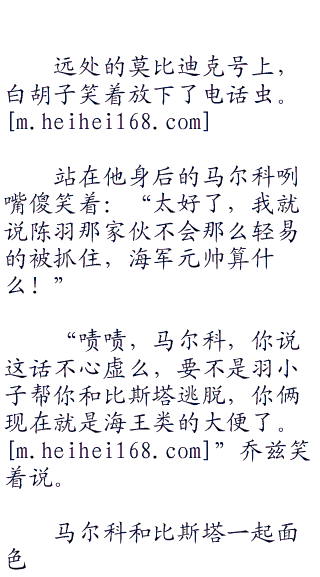 远处的莫比迪克号上，
白胡子笑着放下了电话虫。
[m.heihei168.com]
站在他身后的马尔科咧
嘴傻笑着：“太好了，我就
说陈羽那家伙不会那么轻易
的被抓住，海军元帅算什
么！”
“啧啧，马尔科，你说
这话不心虚么，要不是羽小
子帮你和比斯塔逃脱，你俩
现在就是海王类的大便了。
[m.heihei168.com]”乔兹笑
着说。
马尔科和比斯塔一起面
色